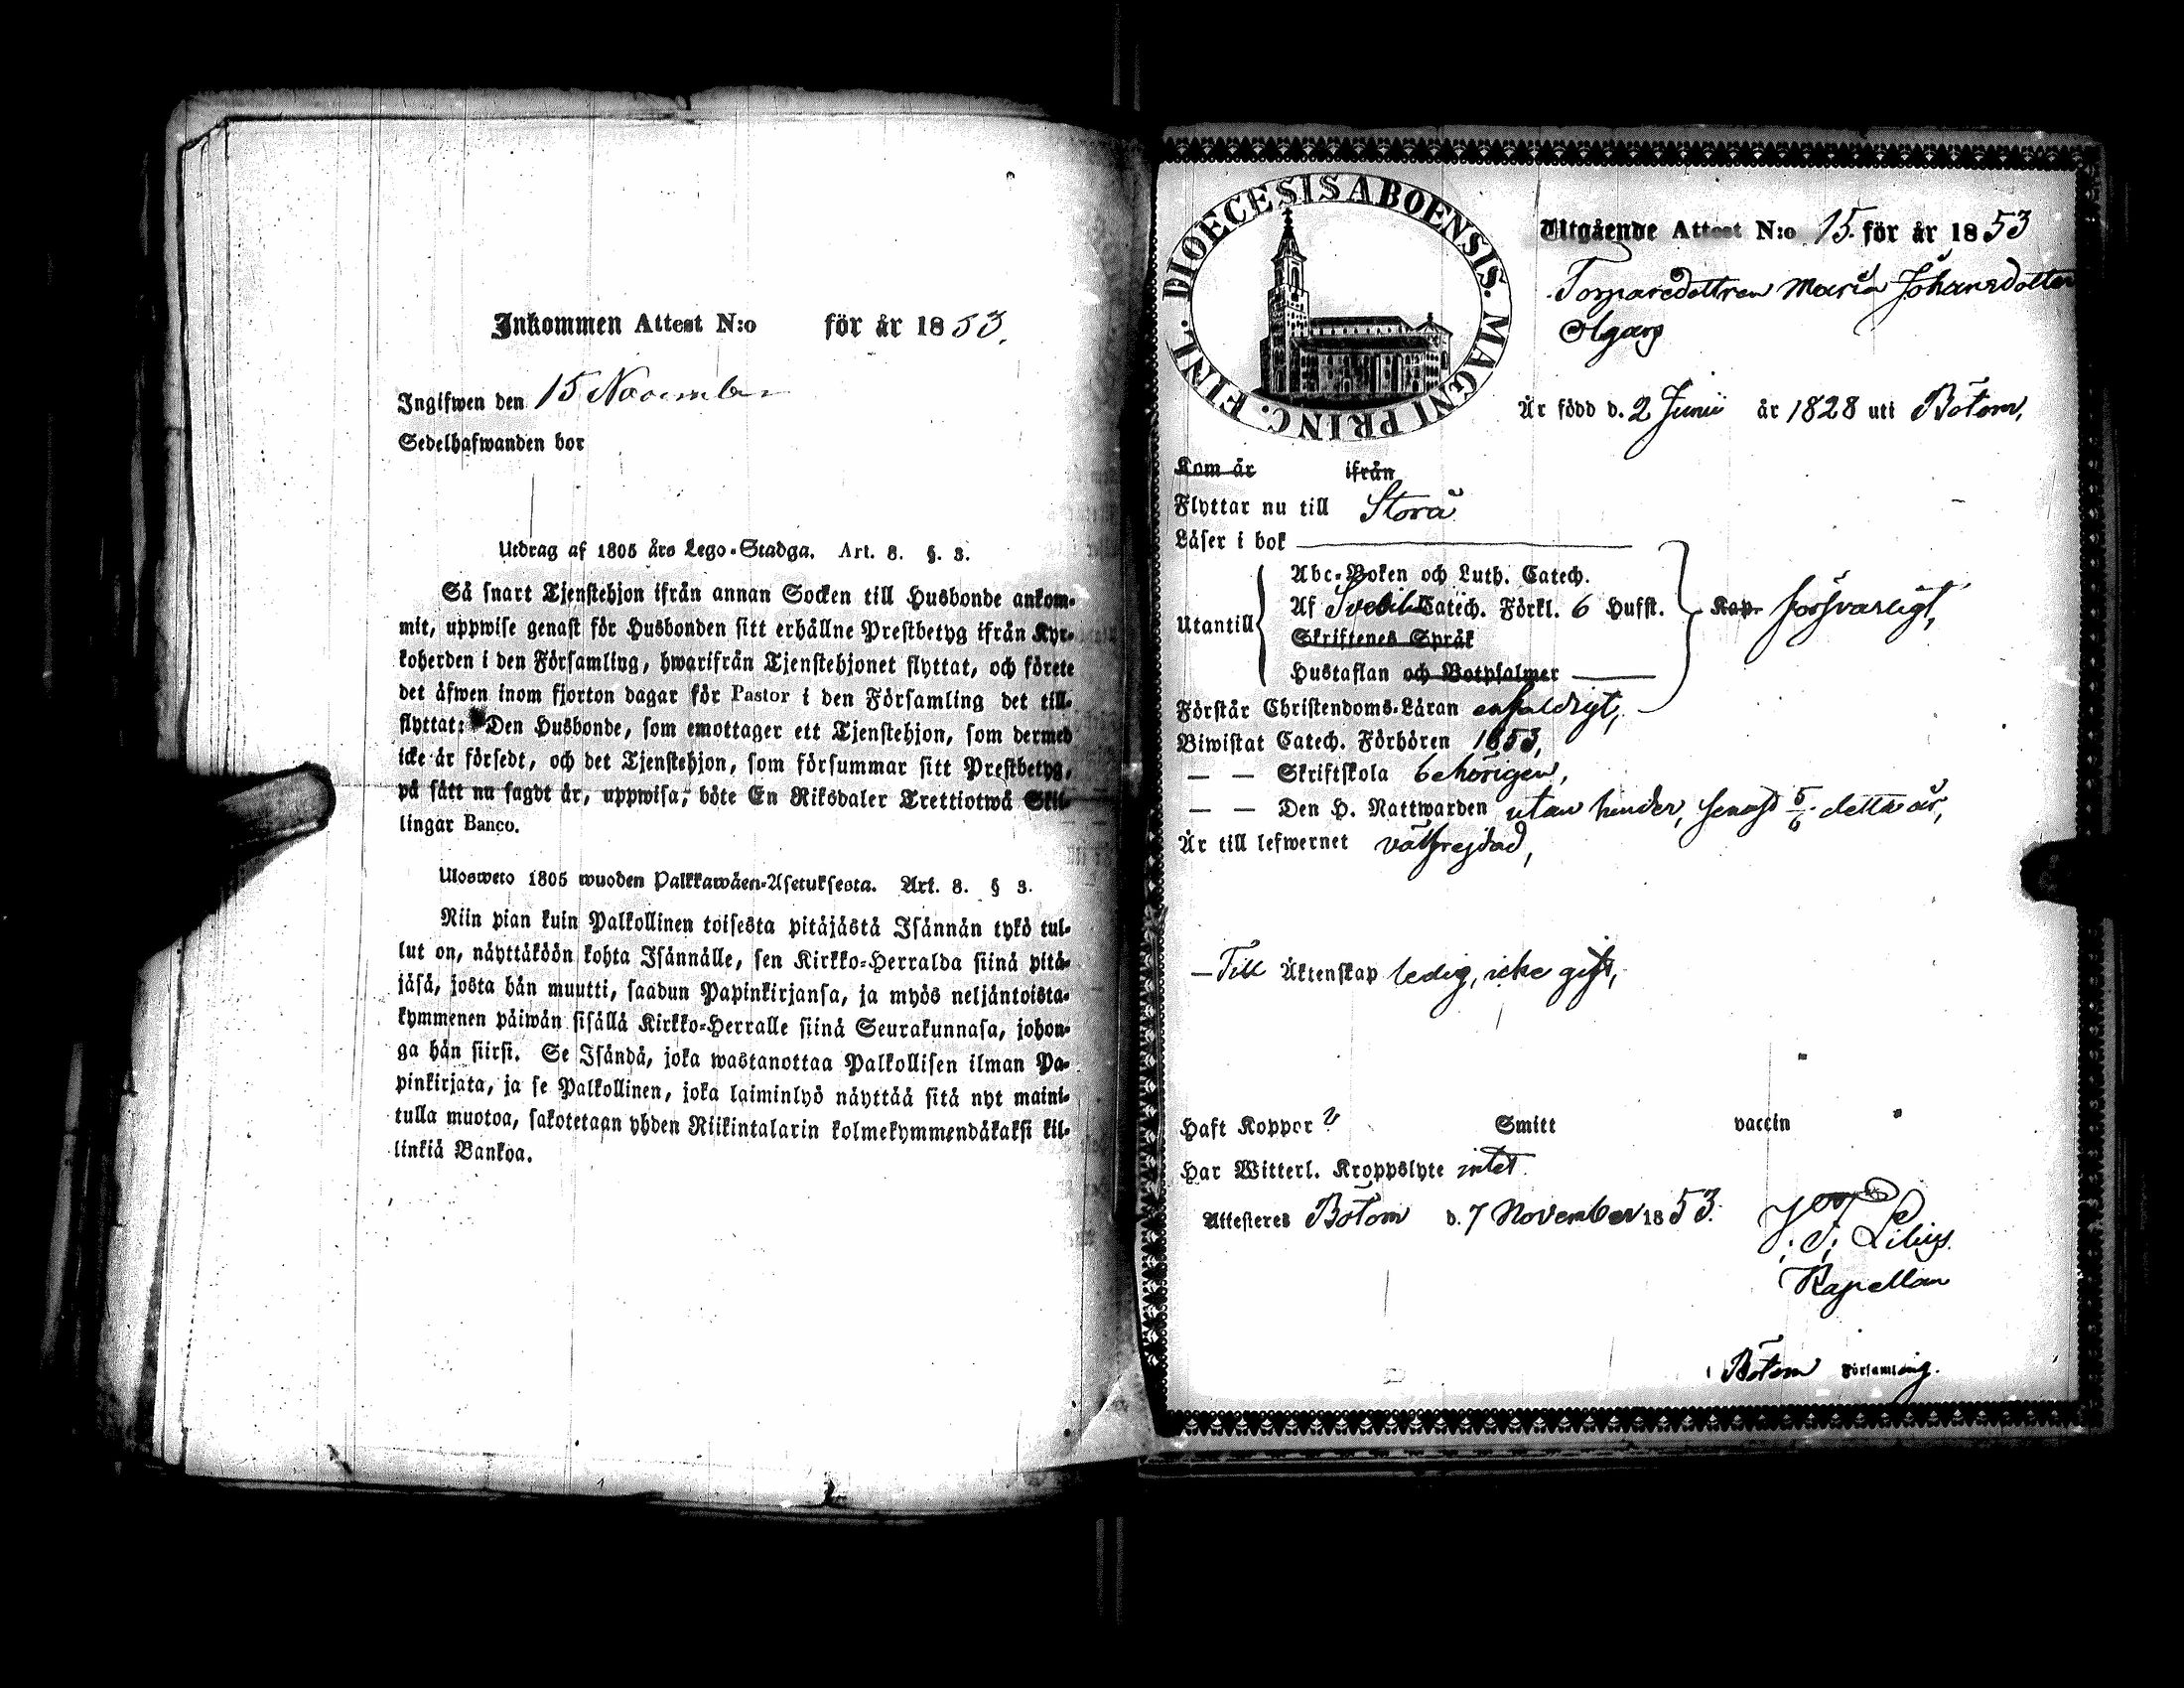 Inkommen Attest N:o för år 1853.
Ingifwen den 15 November
Sedelhafwanden bor
Utdrag af 1805 års Lego-Stadga. Art. 8. §. 3.
Så snart Tjenstehjon ifrån annan Socken till Husbonde ankom-
mit, uppwise genast för Husbonden sitt erhållne Prestbetyg ifrån Kyr-
koherden i den Församling, hwarifrån Tjenstehjonet flyttat, och förete
det äfwen inom fjorton dagar för Pastor i den Församling det till-
flyttat: Den Husbonde, som emottager ett Tjenstehjon, som dermed
icke är försedt, och det Tjenstehjon, som försummar sitt Prestbetyg,
på sätt nu sagdt är, uppwisa, böte En Riksdaler Trettiotwå Skil-
lingar Banco.
Ulosweto 1805 wuoden Palkkawäen-Asetuksesta. Art. 8. § 3.
Niin pian kuin Palkollinen toisesta pitäjästä Isännän tykö tul-
lut on, näyttäköön kohta Isännälle, sen Kirkko-Herralda siinä pitä-
jäsä, josta hän muutti, saadun Papinkirjansa, ja myös neljäntoista-
kymmenen päiwän sisällä Kirkko-Herralle siinä Seurakunnasa, johon-
ga hän siirsi. Se Isändä, joka wastanottaa Palkollisen ilman Pa-
pinkirjata, ja se Palkollinen, joka laiminlyö näyttää sitä nyt maini-
tulla muotoa, sakotetaan yhden Riikintalarin kolmekymmendäkaksi kil-
linkiä Bankoa.
DIOECESIS ABOENSIS. MAGNI PRINC. FINL.
Utgående Attest N:o 15. för år 1853
Torparedottren Maria Johansdotter
Är född d. 2 Junii år 1828 uti Bötom,
Kom år ifrån
Flyttar nu till Storå
Läser i bok
Abc-Boken och Luth. Catech.
Utantill Af Svebilii Catech. Förkl. 6 Hufst. Kap. försvarligt,
Skriftenes Språk
Hustaflan och Botpsalmer
Förstår Christendoms-Läran enfaldigt,
Biwistat Catech. Förhören 1853,
— — Skriftskola behörigen,
— — Den H. Nattwarden utan hinder, senast 5/6 detta år,
Är till lefwernet välfrejdad,
— Till Äktenskap ledig, icke gift,
Haft Koppor Smitt vaccin
Har Witterl. Kroppslyte intet.
Attesteres Bötom d. 7 November 1853.
Lilius.
Kapellan
i Bötom Församling.